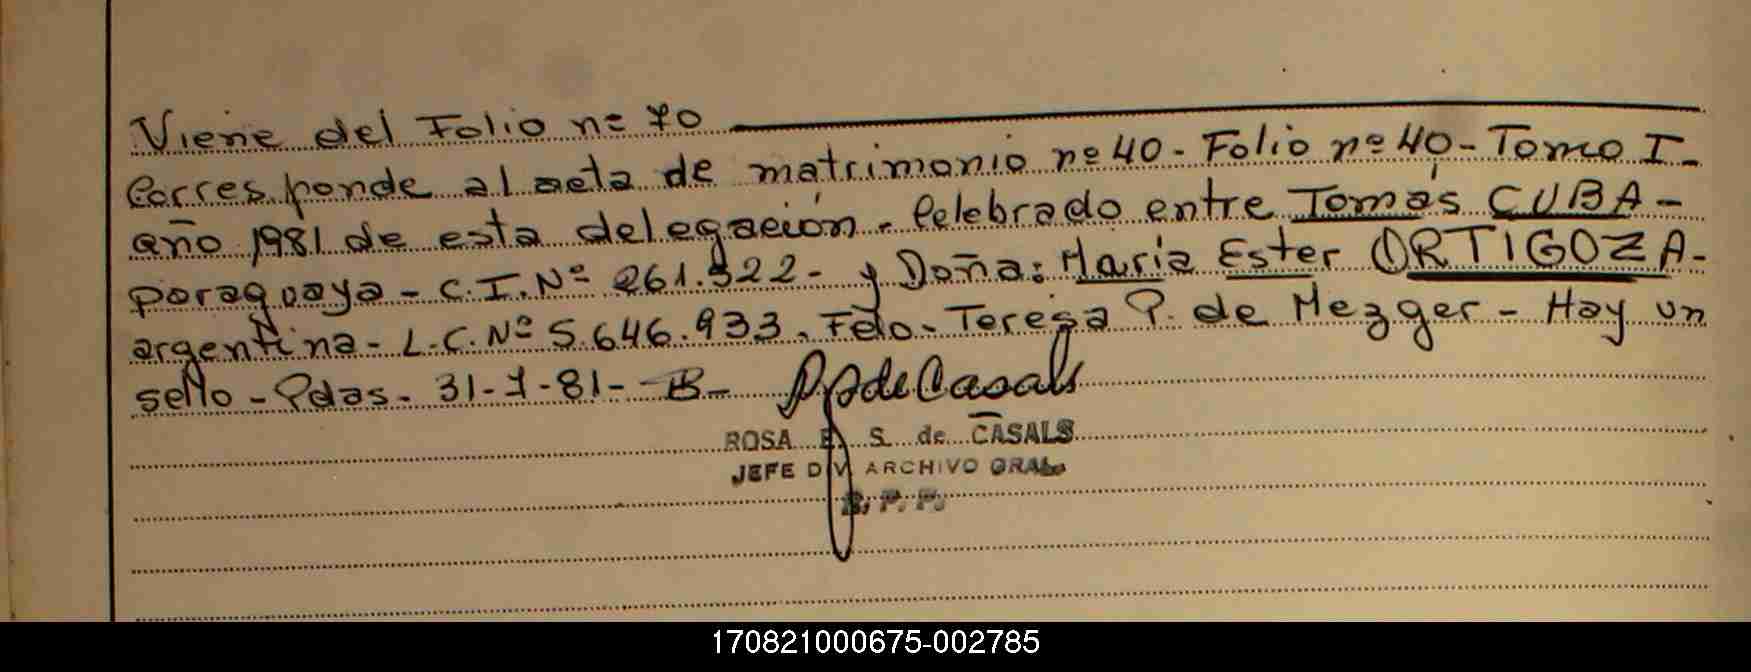 Viene del Folio nº 70
Corresponde al acta de matrimonio nº 40 - Folio nº 40 - Tomo I -
año 1981 de esta delegación - Celebrado entre Tomás CUBA -
paraguaya - C.I. Nº 261.322 - y Doña: María Ester ORTIGOZA -
argentina - L.C. Nº 5.646.933. Fdo - Teresa P. de Mezger - Hay un
sello - Pdas - 31-7-81 - B -
ROSA E. S. de CASALS
JEFE DIV ARCHIVO GRAL.
R. P. P.
170821000675-002785